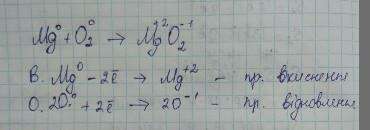 Mg⁰ + O₂⁰ → Mg⁺²O₂⁻¹
В. Mg⁰ - 2ē → Mg⁺² - пр. окиснення
О. 2O⁰ + 2ē → 2O⁻¹ - пр. відновлення